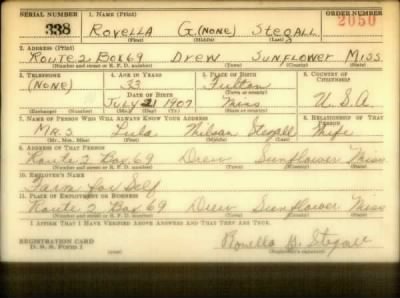 SERIAL NUMBER 1. NAME (Print) ORDER NUMBER
338 ROVELLA G. (NONE) STEGALL 2050
(First) (Middle) (Last)
2. ADDRESS (Print)
ROUTE 2 BOX 69 DREW SUNFLOWER MISS.
(Number and street or R. F. D. number) (Town) (County) (State)
3. TELEPHONE 4. AGE IN YEARS 5. PLACE OF BIRTH 6. COUNTRY OF CITIZENSHIP
(NONE) 33 Fulton
DATE OF BIRTH (Town or county)
JULY 21 1907 Miss U.S.A
(Exchange) (Number) (Mo.) (Day) (Yr.) (State or country)
7. NAME OF PERSON WHO WILL ALWAYS KNOW YOUR ADDRESS 8. RELATIONSHIP OF THAT PERSON
MRS Lula Wilson Stegall Wife
(Mr., Mrs., Miss) (First) (Middle) (Last)
9. ADDRESS OF THAT PERSON
Route 2 Box 69 Drew Sunflower Miss
(Number and street or R. F. D. number) (Town) (County) (State)
10. EMPLOYER'S NAME
Farm for Self
11. PLACE OF EMPLOYMENT OR BUSINESS
Route 2 Box 69 Drew Sunflower Miss
(Number and street or R. F. D. number) (Town) (County) (State)
I AFFIRM THAT I HAVE VERIFIED ABOVE ANSWERS AND THAT THEY ARE TRUE.
REGISTRATION CARD
D. S. S. FORM 1 Rovella G. Stegall
(Registrant's signature)